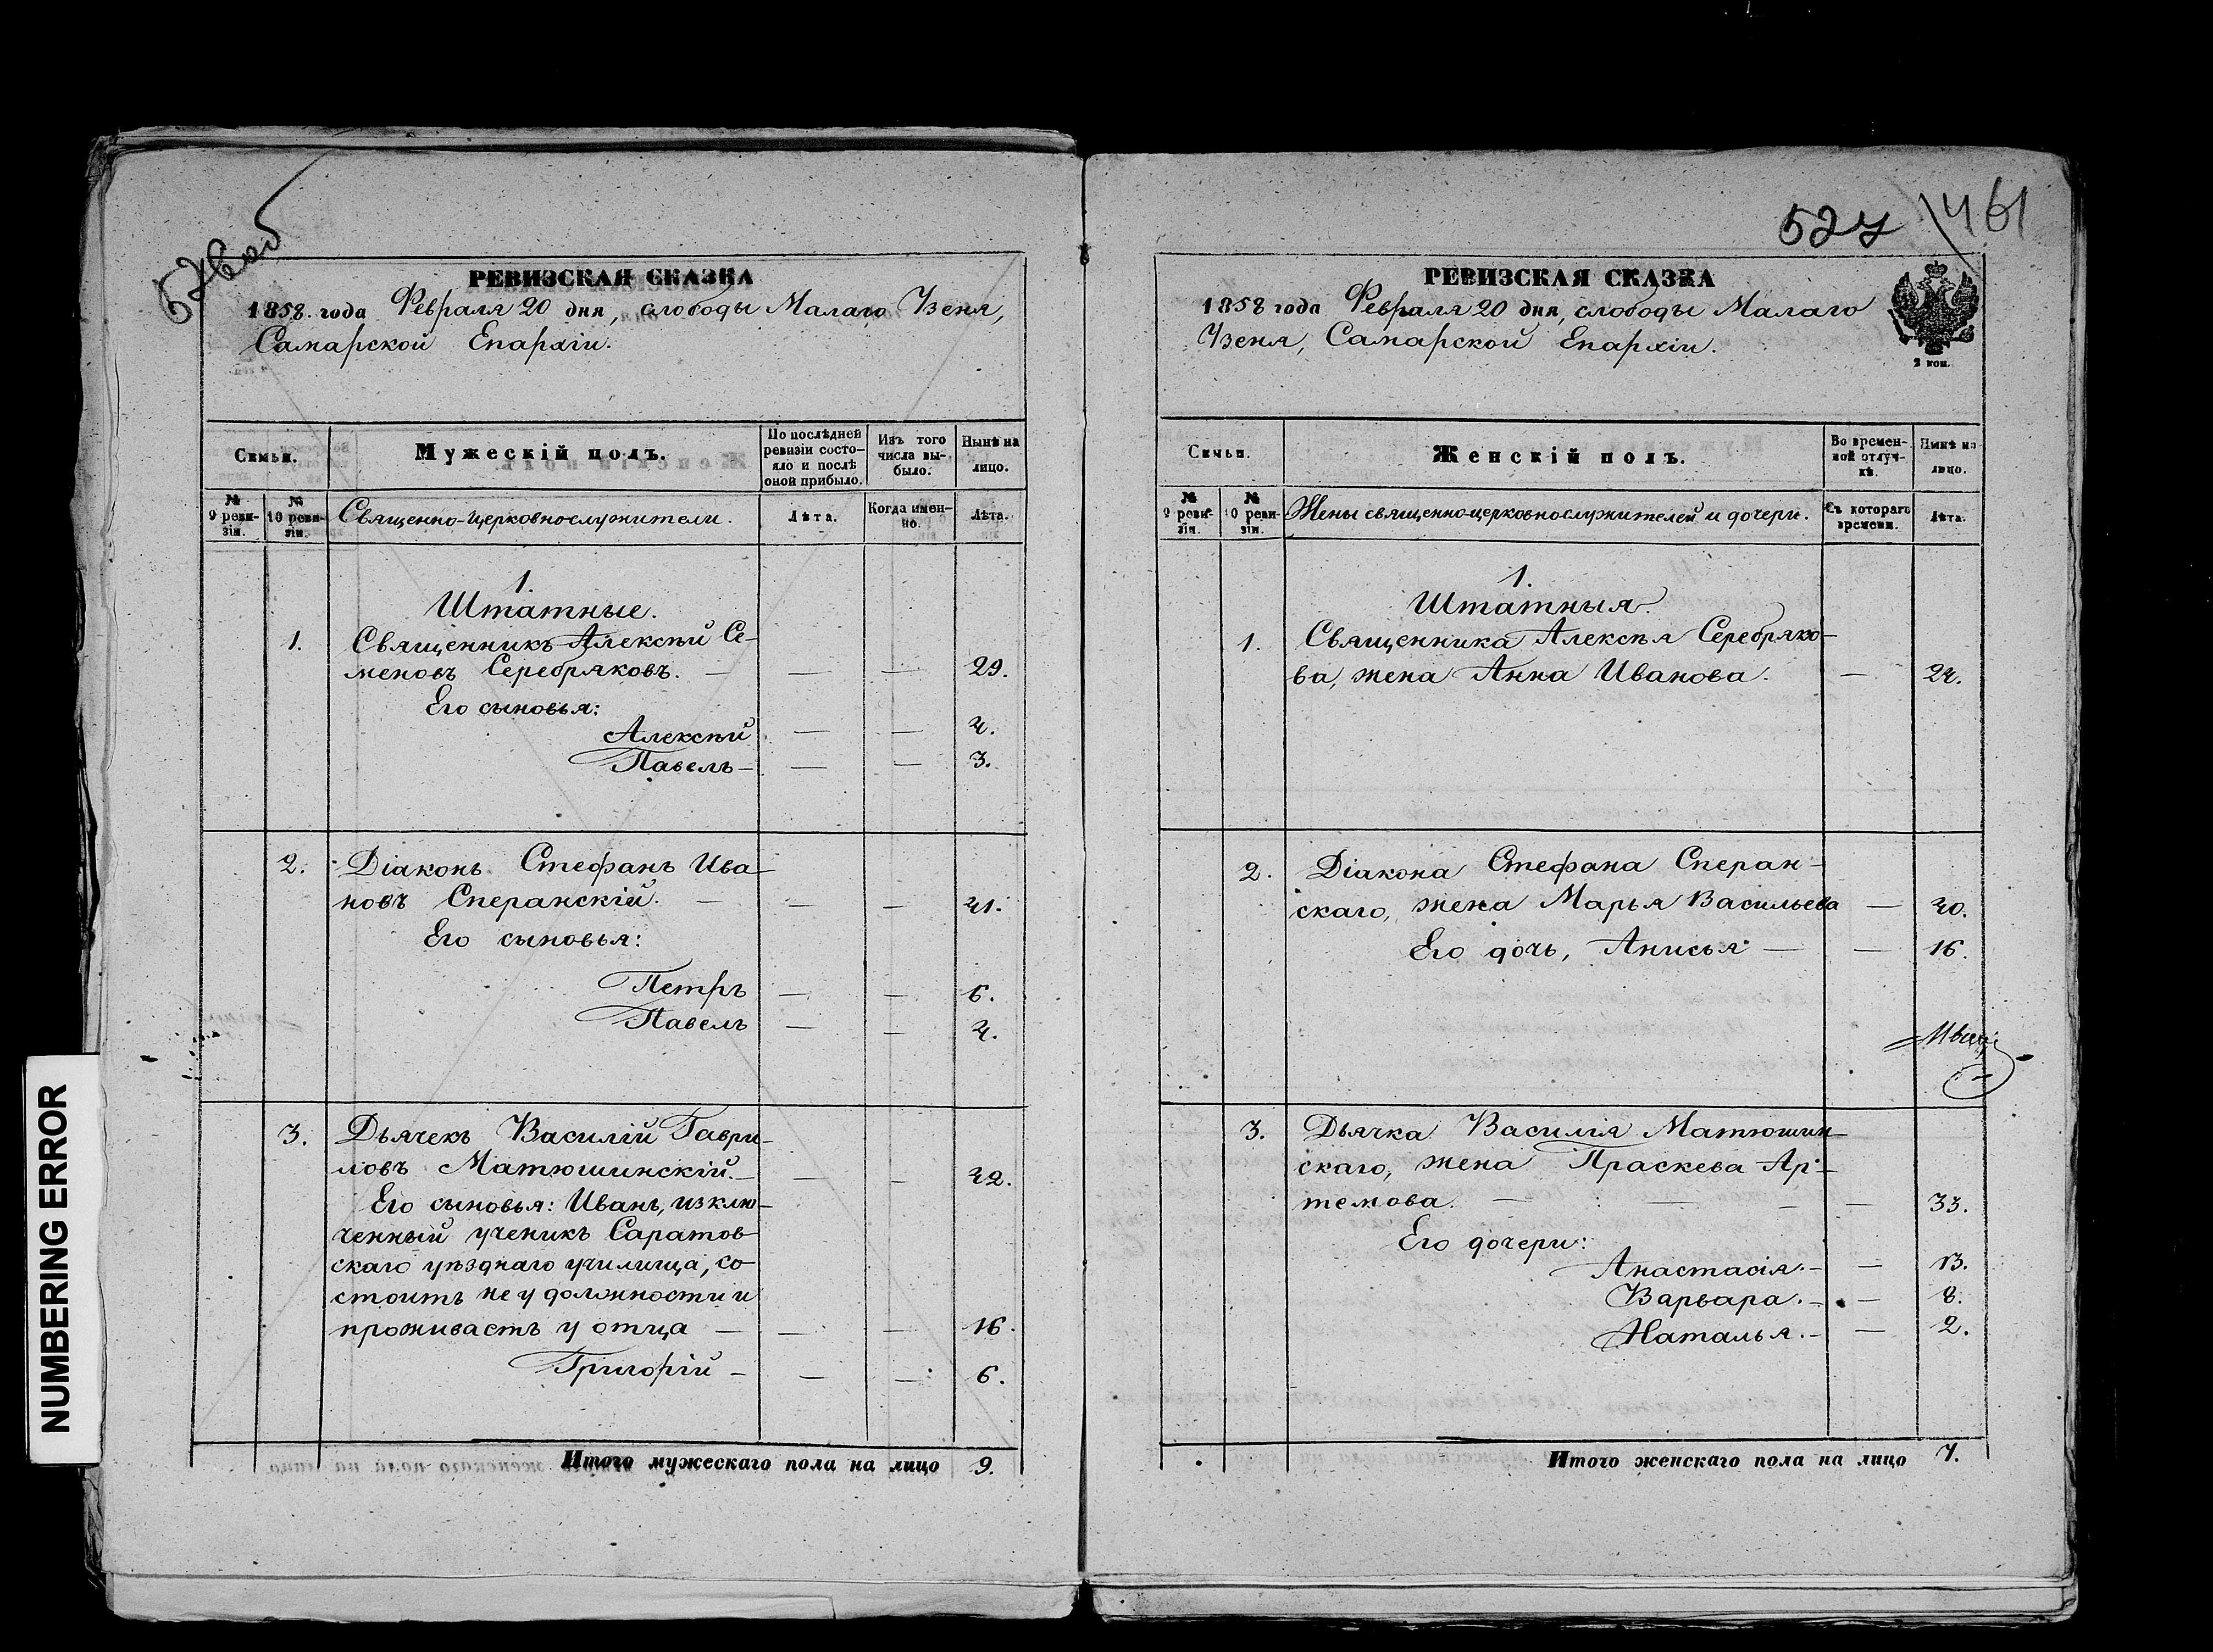 526об
РЕВИЗСКАЯ СКАЗКА
1858. года Февраля 20 дня, слободы Малаго Узеня,
Самарской Епархіи.
Семьи.
Мужескій полъ.
По послѣдней ревизіи состо-яло и послѣ оной прибыло.
Изъ того числа вы-было.
Нынѣ на лицо.
№ 9 реви-зіи.
№ 10 реви-зіи.
Священно-церковнослужители.
Лѣта.
Когда имен-но.
Лѣта.
1.
Штатные.
1. Священникъ Алексѣй Се-
меновъ Серебряковъ. — — — 29.
Его сыновья:
Алексѣй — — 4.
Павелъ — — — 3.
2. Діаконъ Стефанъ Ива-
новъ Сперанскій. — — — 41.
Его сыновья:
Петръ — — 6.
Павелъ — — 4.
3. Дьячекъ Василій Гаври-
ловъ Матюшинскій. — — — 42.
Его сыновья: Иванъ, изклю-
ченный ученикъ Саратов-
скаго уѣзднаго училища, со-
стоитъ не у должности и
проживаетъ у отца — — — 16.
Григорій — — — 6.
Итого мужескаго пола на лицо 9.
527 461
РЕВИЗСКАЯ СКАЗКА
1858 года Февраля 20 дня, слободы Малаго
Узеня, Самарской Епархіи.
2 коп.
Семьи.
Женскій полъ.
Во времен-ной отлуч-кѣ.
Нынѣ на лицо.
№ 9 реви-зіи.
№ 10 реви-зіи.
Жены священно-церковнослужителей и дочери.
Съ котораго времени.
Лѣта.
1.
Штатныя.
1. Священника Алексѣя Серебряко-
ва, жена Анна Иванова. — 24.
2. Діакона Стефана Сперан-
скаго, жена Марья Васильева — 40.
Его дочь, Анисья — — 16.
3. Дьячка Василія Матюшин-
скаго, жена Праскева Ар-
темова. — — — — 33.
Его дочери:
Анастасія. — — 13.
Варвара. — — 8.
Наталья. — — 2.
Итого женскаго пола на лицо 7.
NUMBERING ERROR